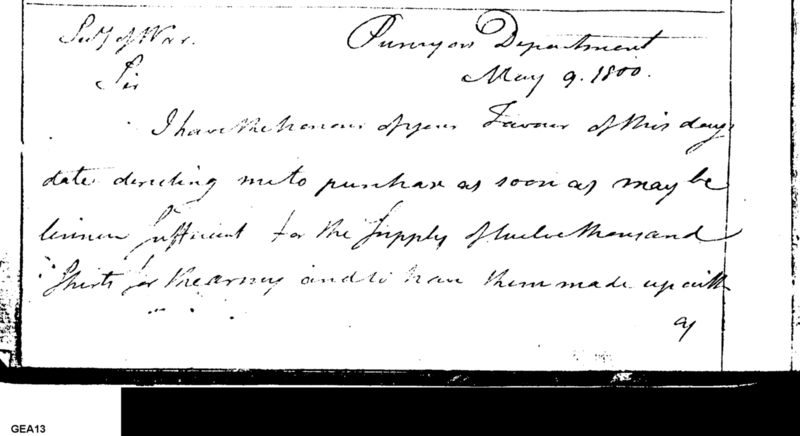 Secy of War. Purveyors Department
Sir May 9. 1800.
I have the honour of your Favour of this days
date directing me to purchase as soon as may be
linnen Sufficient for the Supply of twelve thousand
Shirts for the army and to have them made up with
as
GEA13